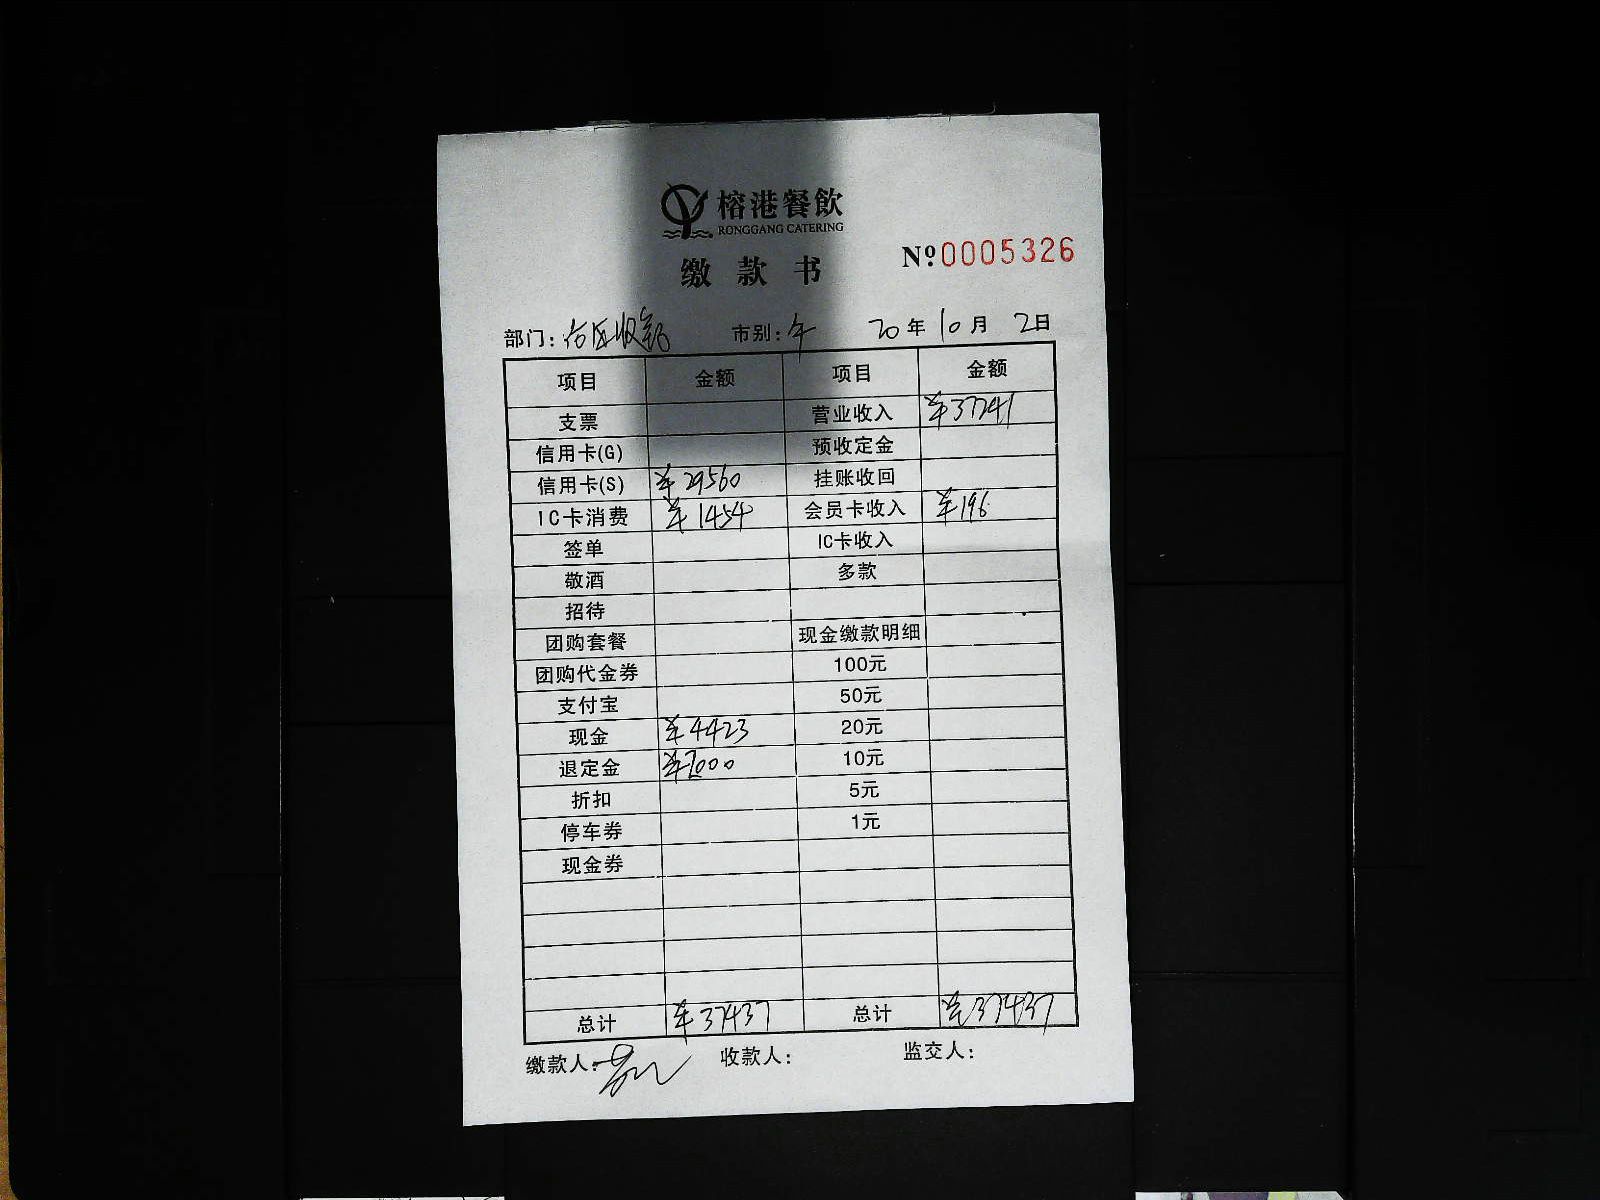 榕港餐飲
RONGGANG CATERING
缴款书
Nº0005326
部门: 收 市别:午 20年10月2日
项目 金额 项目 金额
支票 营业收入 ¥37241
信用卡(G) 预收定金
信用卡(S) ¥29560 挂账收回
IC卡消费 ¥1454 会员卡收入 ¥196
签单 IC卡收入
敬酒 多款
招待
团购套餐 现金缴款明细
团购代金券 100元
支付宝 50元
现金 ¥4423 20元
退定金 ¥2000 10元
折扣 5元
停车券 1元
现金券
总计 ¥37437 总计 ¥37437
缴款人: 收款人: 监交人: